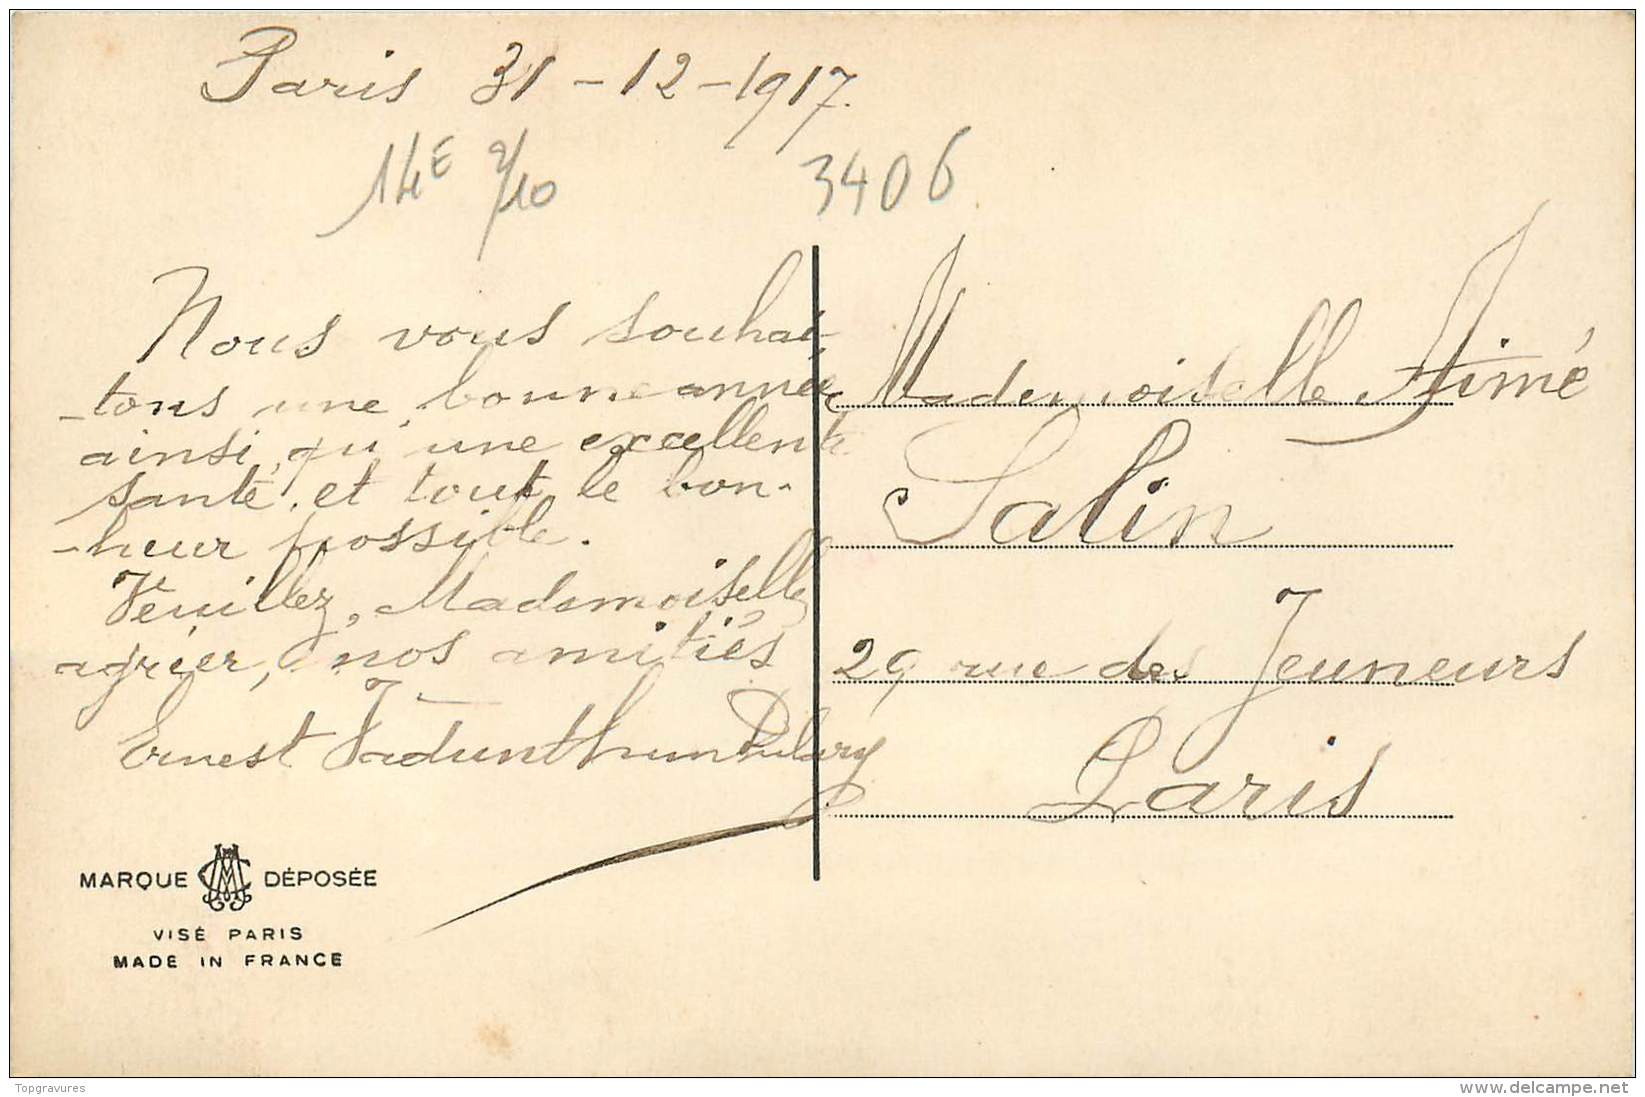 Paris 31-12-1917.
14E 9/10
3406
Nous vous souhai-
-tons une bonne année
ainsi, qu'une excellente
santé, et tout le bon-
-heur possible.
Veuillez, Mademoiselle,
agréer, nos amitiés
Ernest
Mademoiselle Aimé
Salin
29 rue des Jeuneurs
Paris
MARQUE DÉPOSÉE
VISÉ PARIS
MADE IN FRANCE
Topgravures
delcampe.net